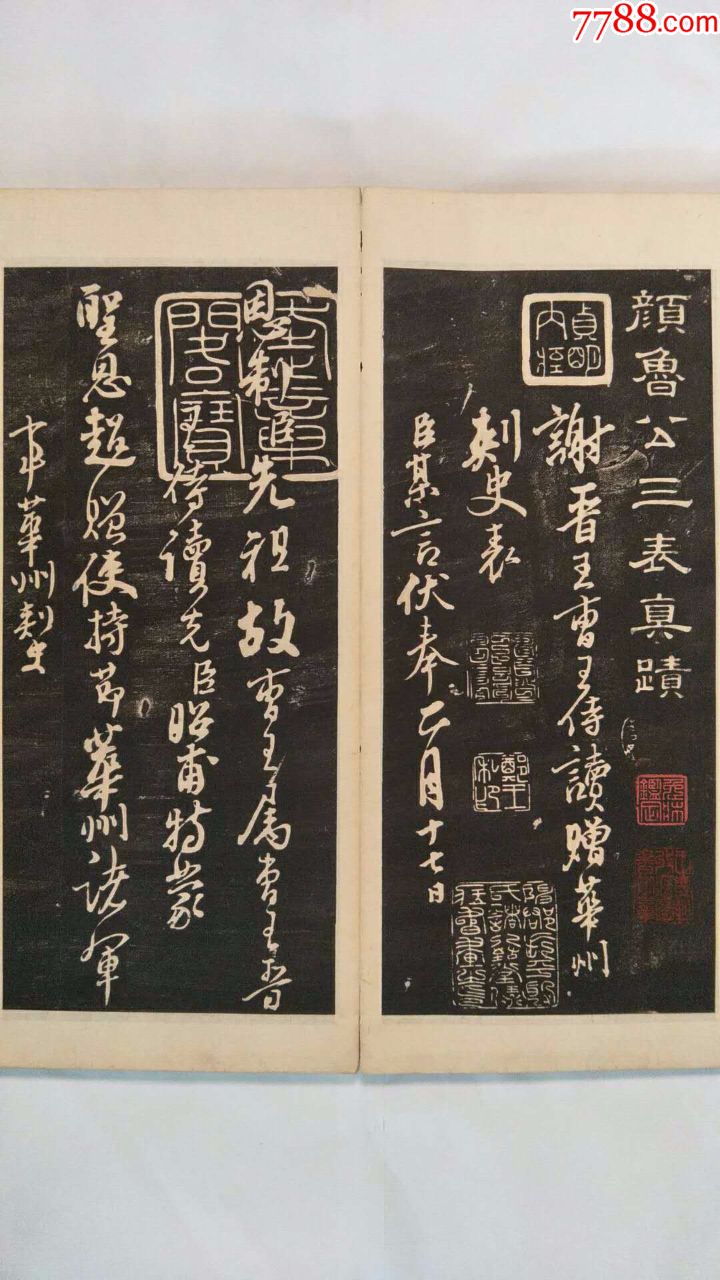 7788.com
顏魯公三表真蹟
謝晉王曹王侍讀贈華州
刺史表
臣某言伏奉二月十七日
貞明
內
奎章
閣寶
恩制臣先祖故曹王屬曹王晉
王侍讀先臣昭甫特蒙
聖恩超贈使持節華州諸軍
事華州刺史